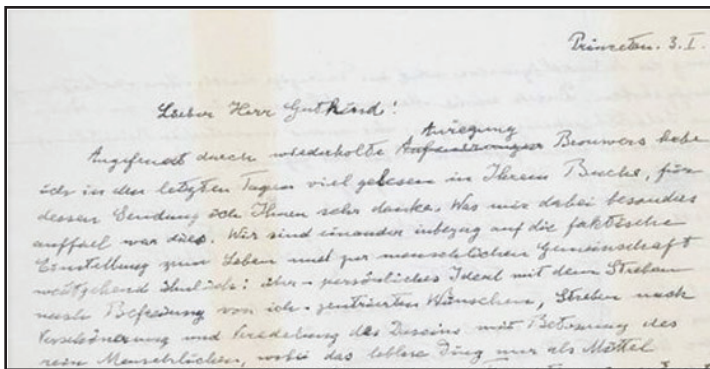 Princeton. 3. I.
Lieber Herr Gutkind!
Anregung
Angefeuert durch wiederholte Brouwers habe
ich in den letzten Tagen viel gelesen in Ihrem Buche, für
dessen Sendung ich Ihnen sehr danke. Was mir dabei besonders
auffiel war dies. Wir sind einander inbezug auf die faktische
Einstellung zum Leben und zur menschlichen Gemeinschaft
weitgehend ähnlich: über-persönliches Ideal mit dem Streben
nach Befreiung von ich-zentrierten Wünschen, Streben nach
Verschönerung und Veredelung des Daseins mit Betonung des
rein Menschlichen, wobei das leblose Ding nur als Mittel